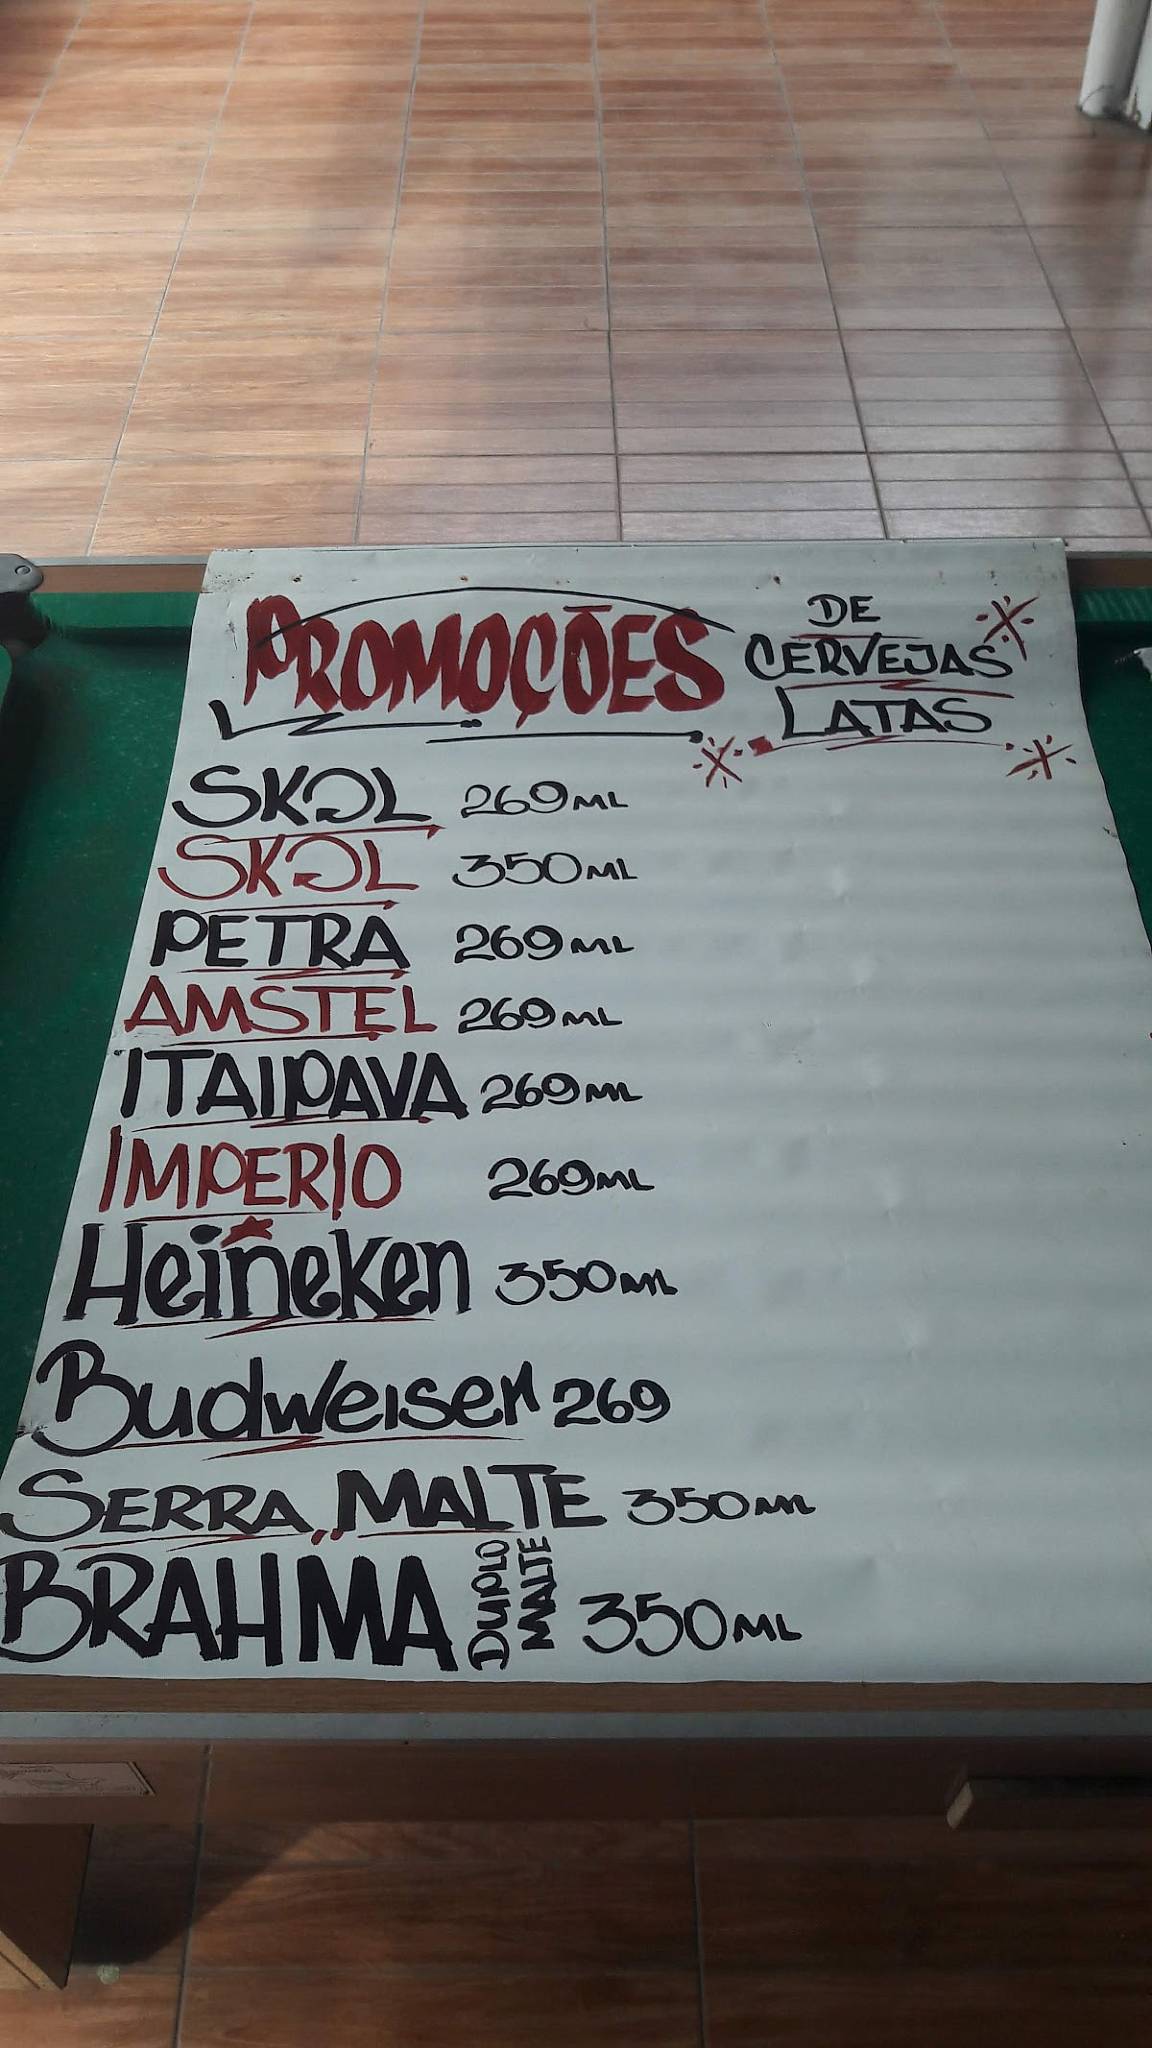 PROMOÇÕES DE CERVEJAS LATAS
SKOL 269ML
SKOL 350ML
PETRA 269ML
AMSTEL 269ML
ITAIPAVA 269ML
IMPERIO 269ML
Heineken 350ML
Budweiser 269
SERRA MALTE 350ML
BRAHMA DUPLO MALTE 350ML